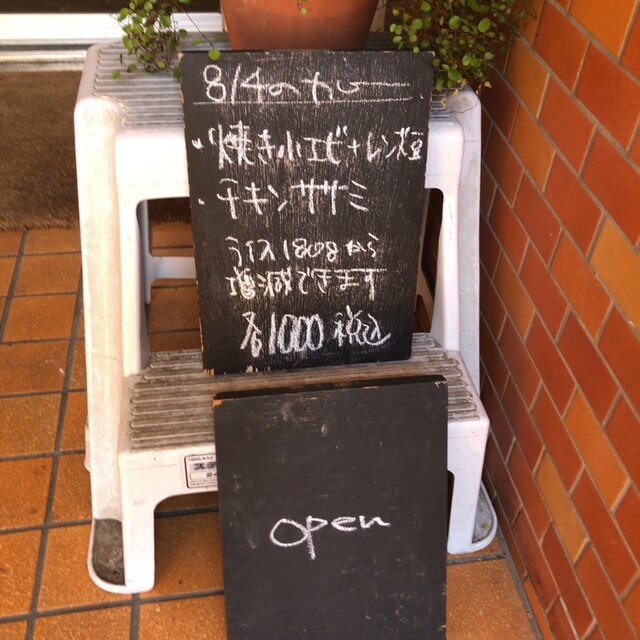 8/4のカレー
・焼き小エビ+レンズ豆
・チキンササミ
ライス180gから
増減できます
各1000税込
open